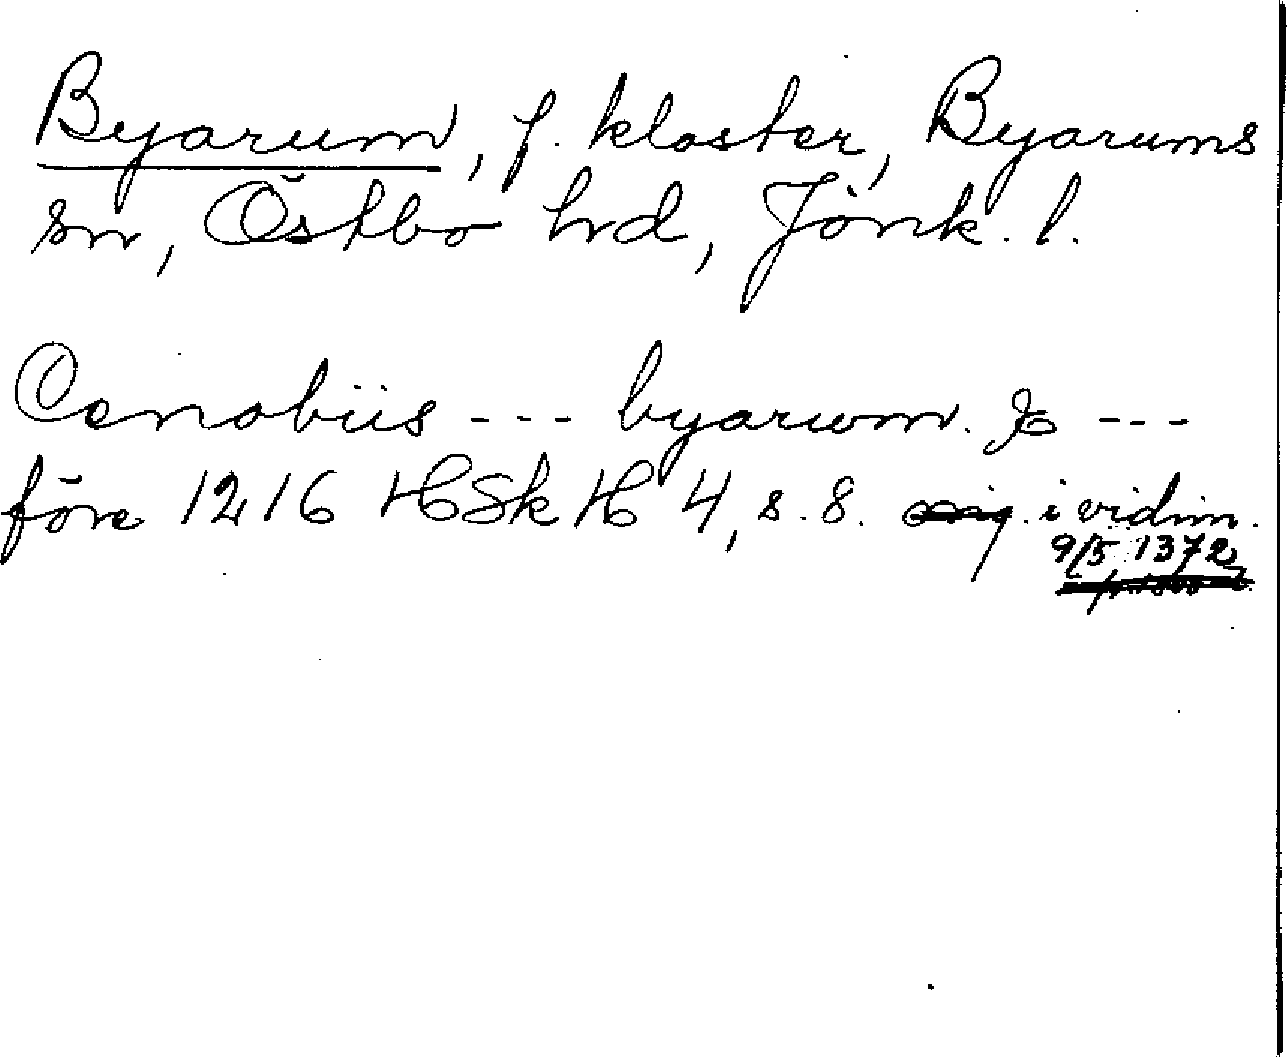 Byarum, f. kloster, Byarums
sn, Östbo hrd, Jönk. l.
Cenobiis --- byarum. &c ---
före 1216 HSkH 4, s. 8. i vidim.
9/5 1372